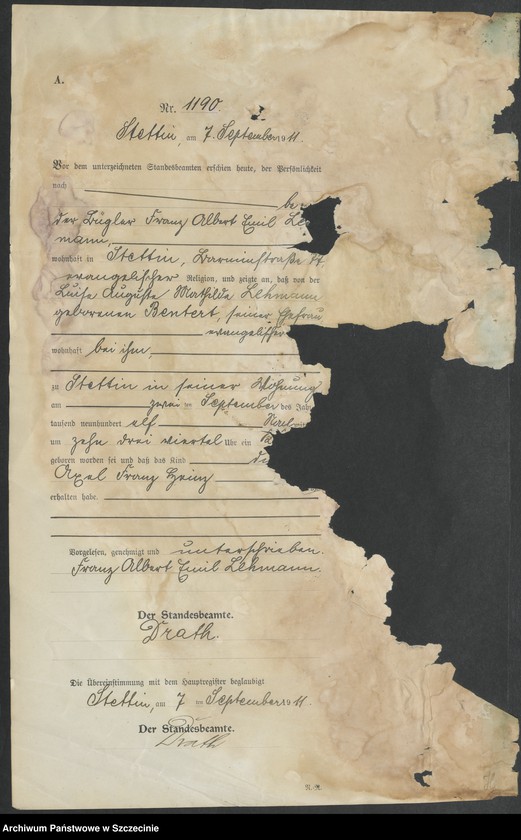 A.
Nr. 1190.
Stettin, am 7. September 1911.
Vor dem unterzeichneten Standesbeamten erschien heute, der Persönlichkeit
nach
be
der Bügler Franz Albert Emil Le
mann,
wohnhaft in Stettin, Barnimstraße
evangelischer Religion, und zeigte an, daß von der
Luise Auguste Mathilde Lehmann
geborenen Bentert, seiner Ehefrau
evangelischer
wohnhaft bei ihm,
zu Stettin in seiner Wohnung
am zwei ten September des Jah
tausend neunhundert elf Nach
um zehn drei viertel Uhr ein
geboren worden sei und daß das Kind
Axel Franz Heinz
erhalten habe.
Vorgelesen, genehmigt und unterschrieben.
Franz Albert Emil Lehmann.
Der Standesbeamte.
Drath.
Die Übereinstimmung mit dem Hauptregister beglaubigt
Stettin, am 7 ten September 1911.
Der Standesbeamte.
Drath
Archiwum Państwowe w Szczecinie